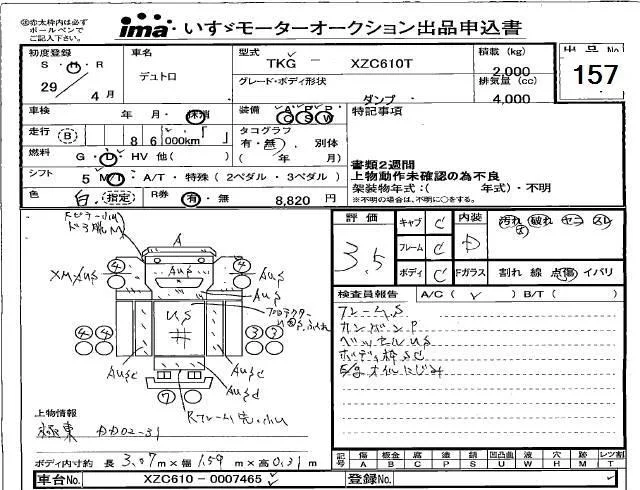 ※赤太枠内は必ず
ボールペンで
ご記入下さい。
ima いすゞモーターオークション出品申込書
初度登録
S・H・R
29／4月
車名
デュトロ
型式
TKG － XZC610T
グレード・ボディ形状
ダンプ
積載 (kg)
2,000
排気量 (cc)
4,000
出品No
157
車検 年 月・抹消
走行 B 86 000km
燃料 G・D・HV 他( )
シフト 5 M/T・A/T・特殊 (2ペダル・3ペダル)
色 白 指定 R券 有・無 8,820 円
装備 A P P
C S W
タコグラフ
有・無 別体
( 年 月)
特記事項
書類2週間
上物動作未確認の為不良
架装物年式:( 年式)・不明
※不明の場合は、不明に○をする。
評価
3.5
キャブ C
フレーム C
ボディ C
内装 D
Fガラス
汚れ 破れ ヤニ スレ
割れ 線 点傷 イバリ
検査員報告 A/C( ✓ ) B/T( )
フレームS
カンバンP
ベッセルUS
ボディ枠SC
オイルにじみ
A
AUS
AUS
AUS
AUS
US
AUSC
AUSC
AUSd
4
4
4
4
3
3
7
上物情報
極東 DD02-31
ボディ内寸約 長 3.07 m×幅 1.59 m×高 0.31 m
記号 傷 A 板金 B 腐 C 塗 P 錆 S 凹凸曲 U 波 W 穴 H 跡 M レンズ割 T
車台No. XZC610－0007465
登録No.